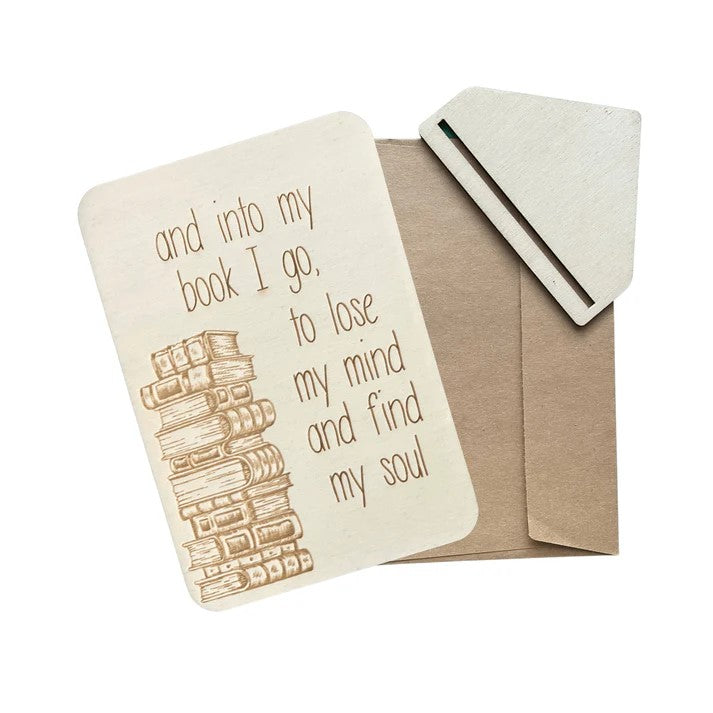 and into my
book I go,
to lose
my mind
and find
my soul